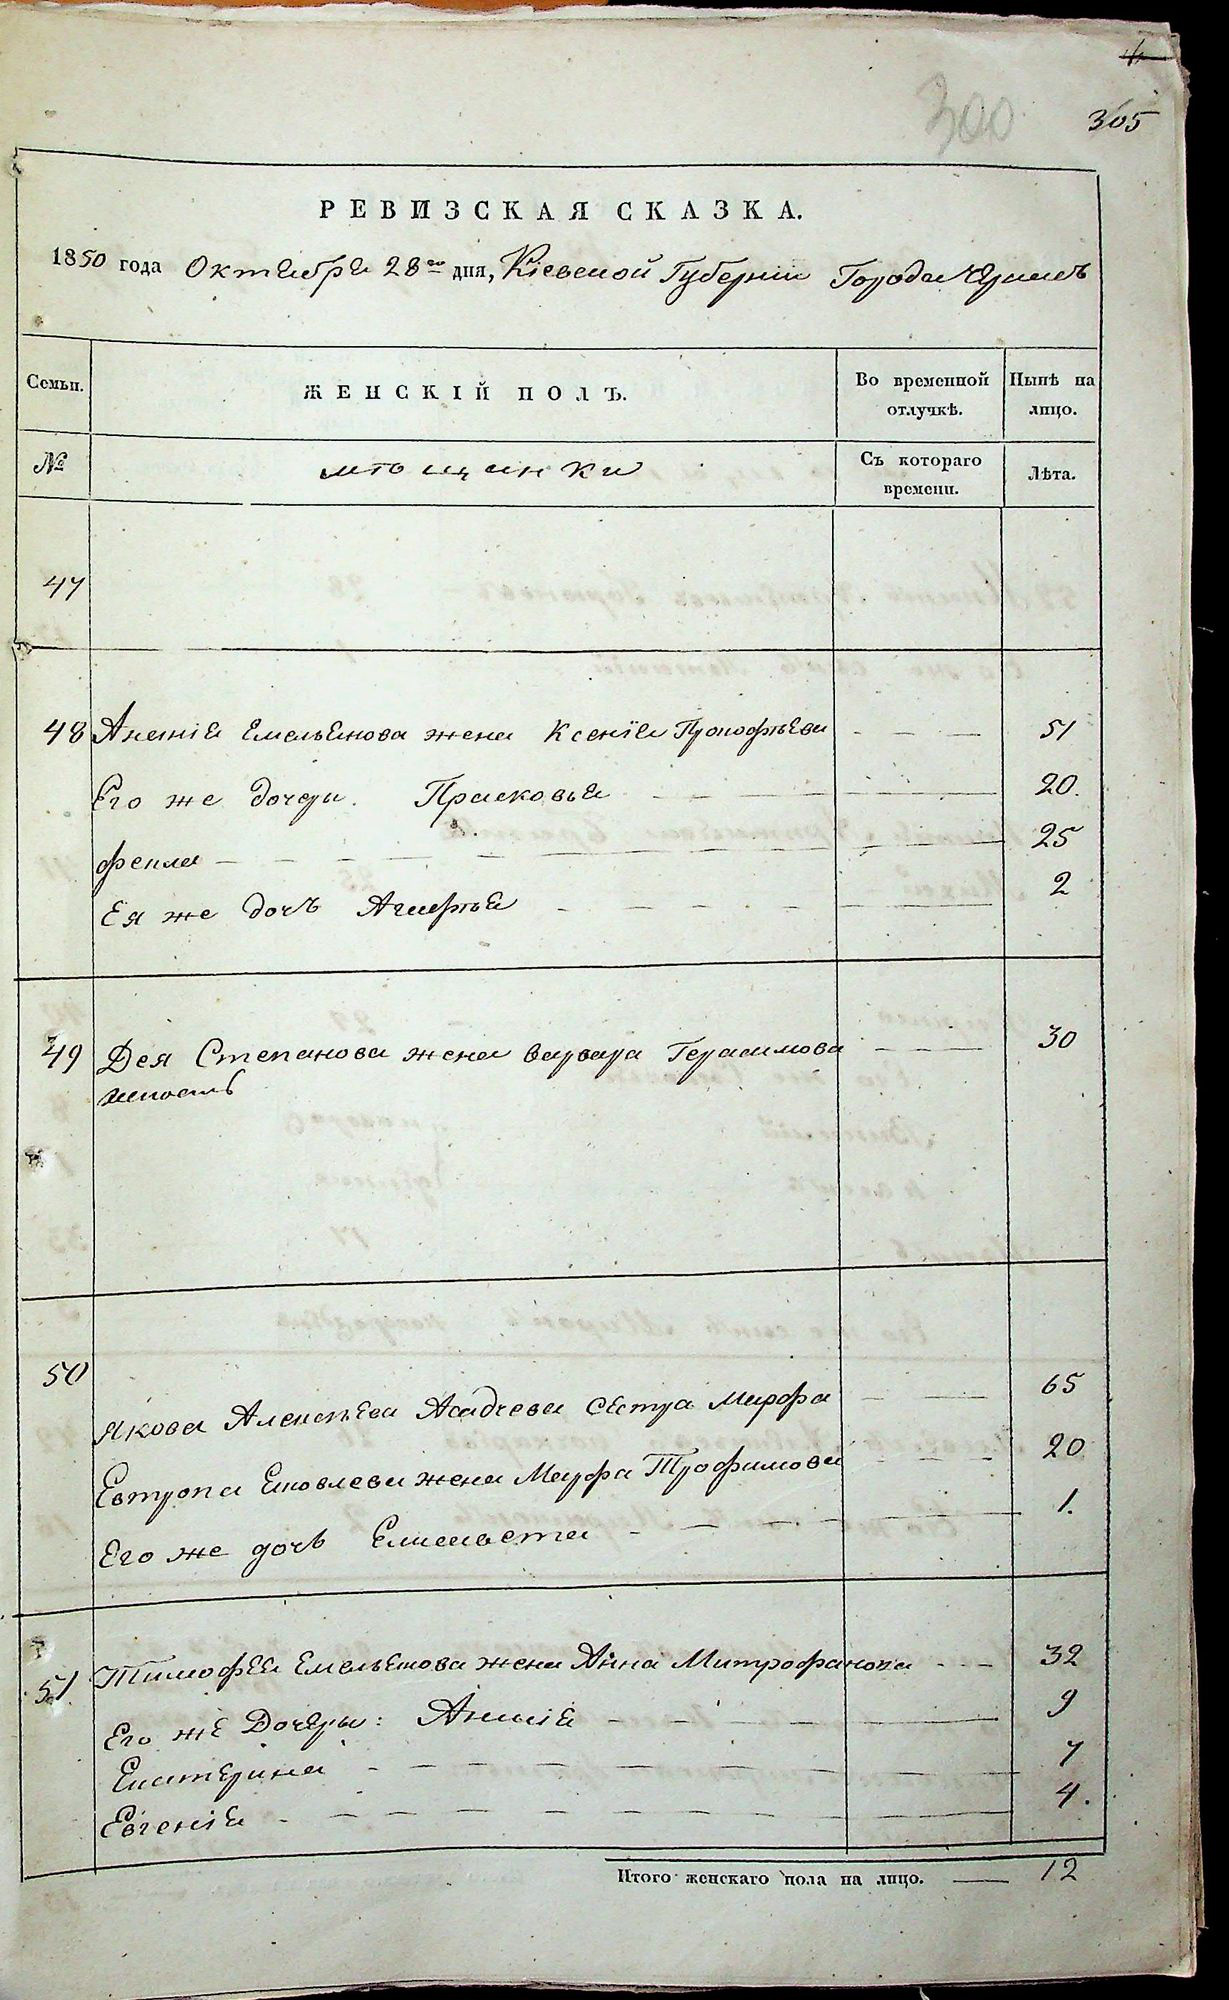 300
305
РЕВИЗСКАЯ СКАЗКА.
1850 года Октября 28го дня, Кіевской Губерніи Города
Семьи.
ЖЕНСКІЙ ПОЛЪ.
Во временной отлучкѣ.
Нынѣ на лицо.
№
мѣщанки
Съ котораго времени.
Лѣта.
47
48 Ананія Емельянова жена Ксенія Прокофьева — — — 51
Его же дочери. Прасковья — — — 20.
фекла — — — 25
Ея же дочь Агафья — — — 2
49 Степанова жена варвара Герасимова — — — 30
50
Якова Алексѣева сестра Марфа — — 65
Евтропа Яковлева жена Марфа Трофимова — — — 20
Его же дочь — — — 1.
51 Тимофея Емельянова жена Анна Митрофанова — — — 32
Его же Дочери: — — — 9
Екатерина — — — 7
Евгенія — — — 4.
Итого женскаго пола на лицо. — 12